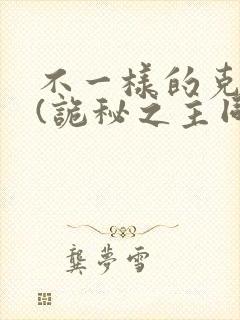 不一樣的克
(詭秘之主同
龔夢雪